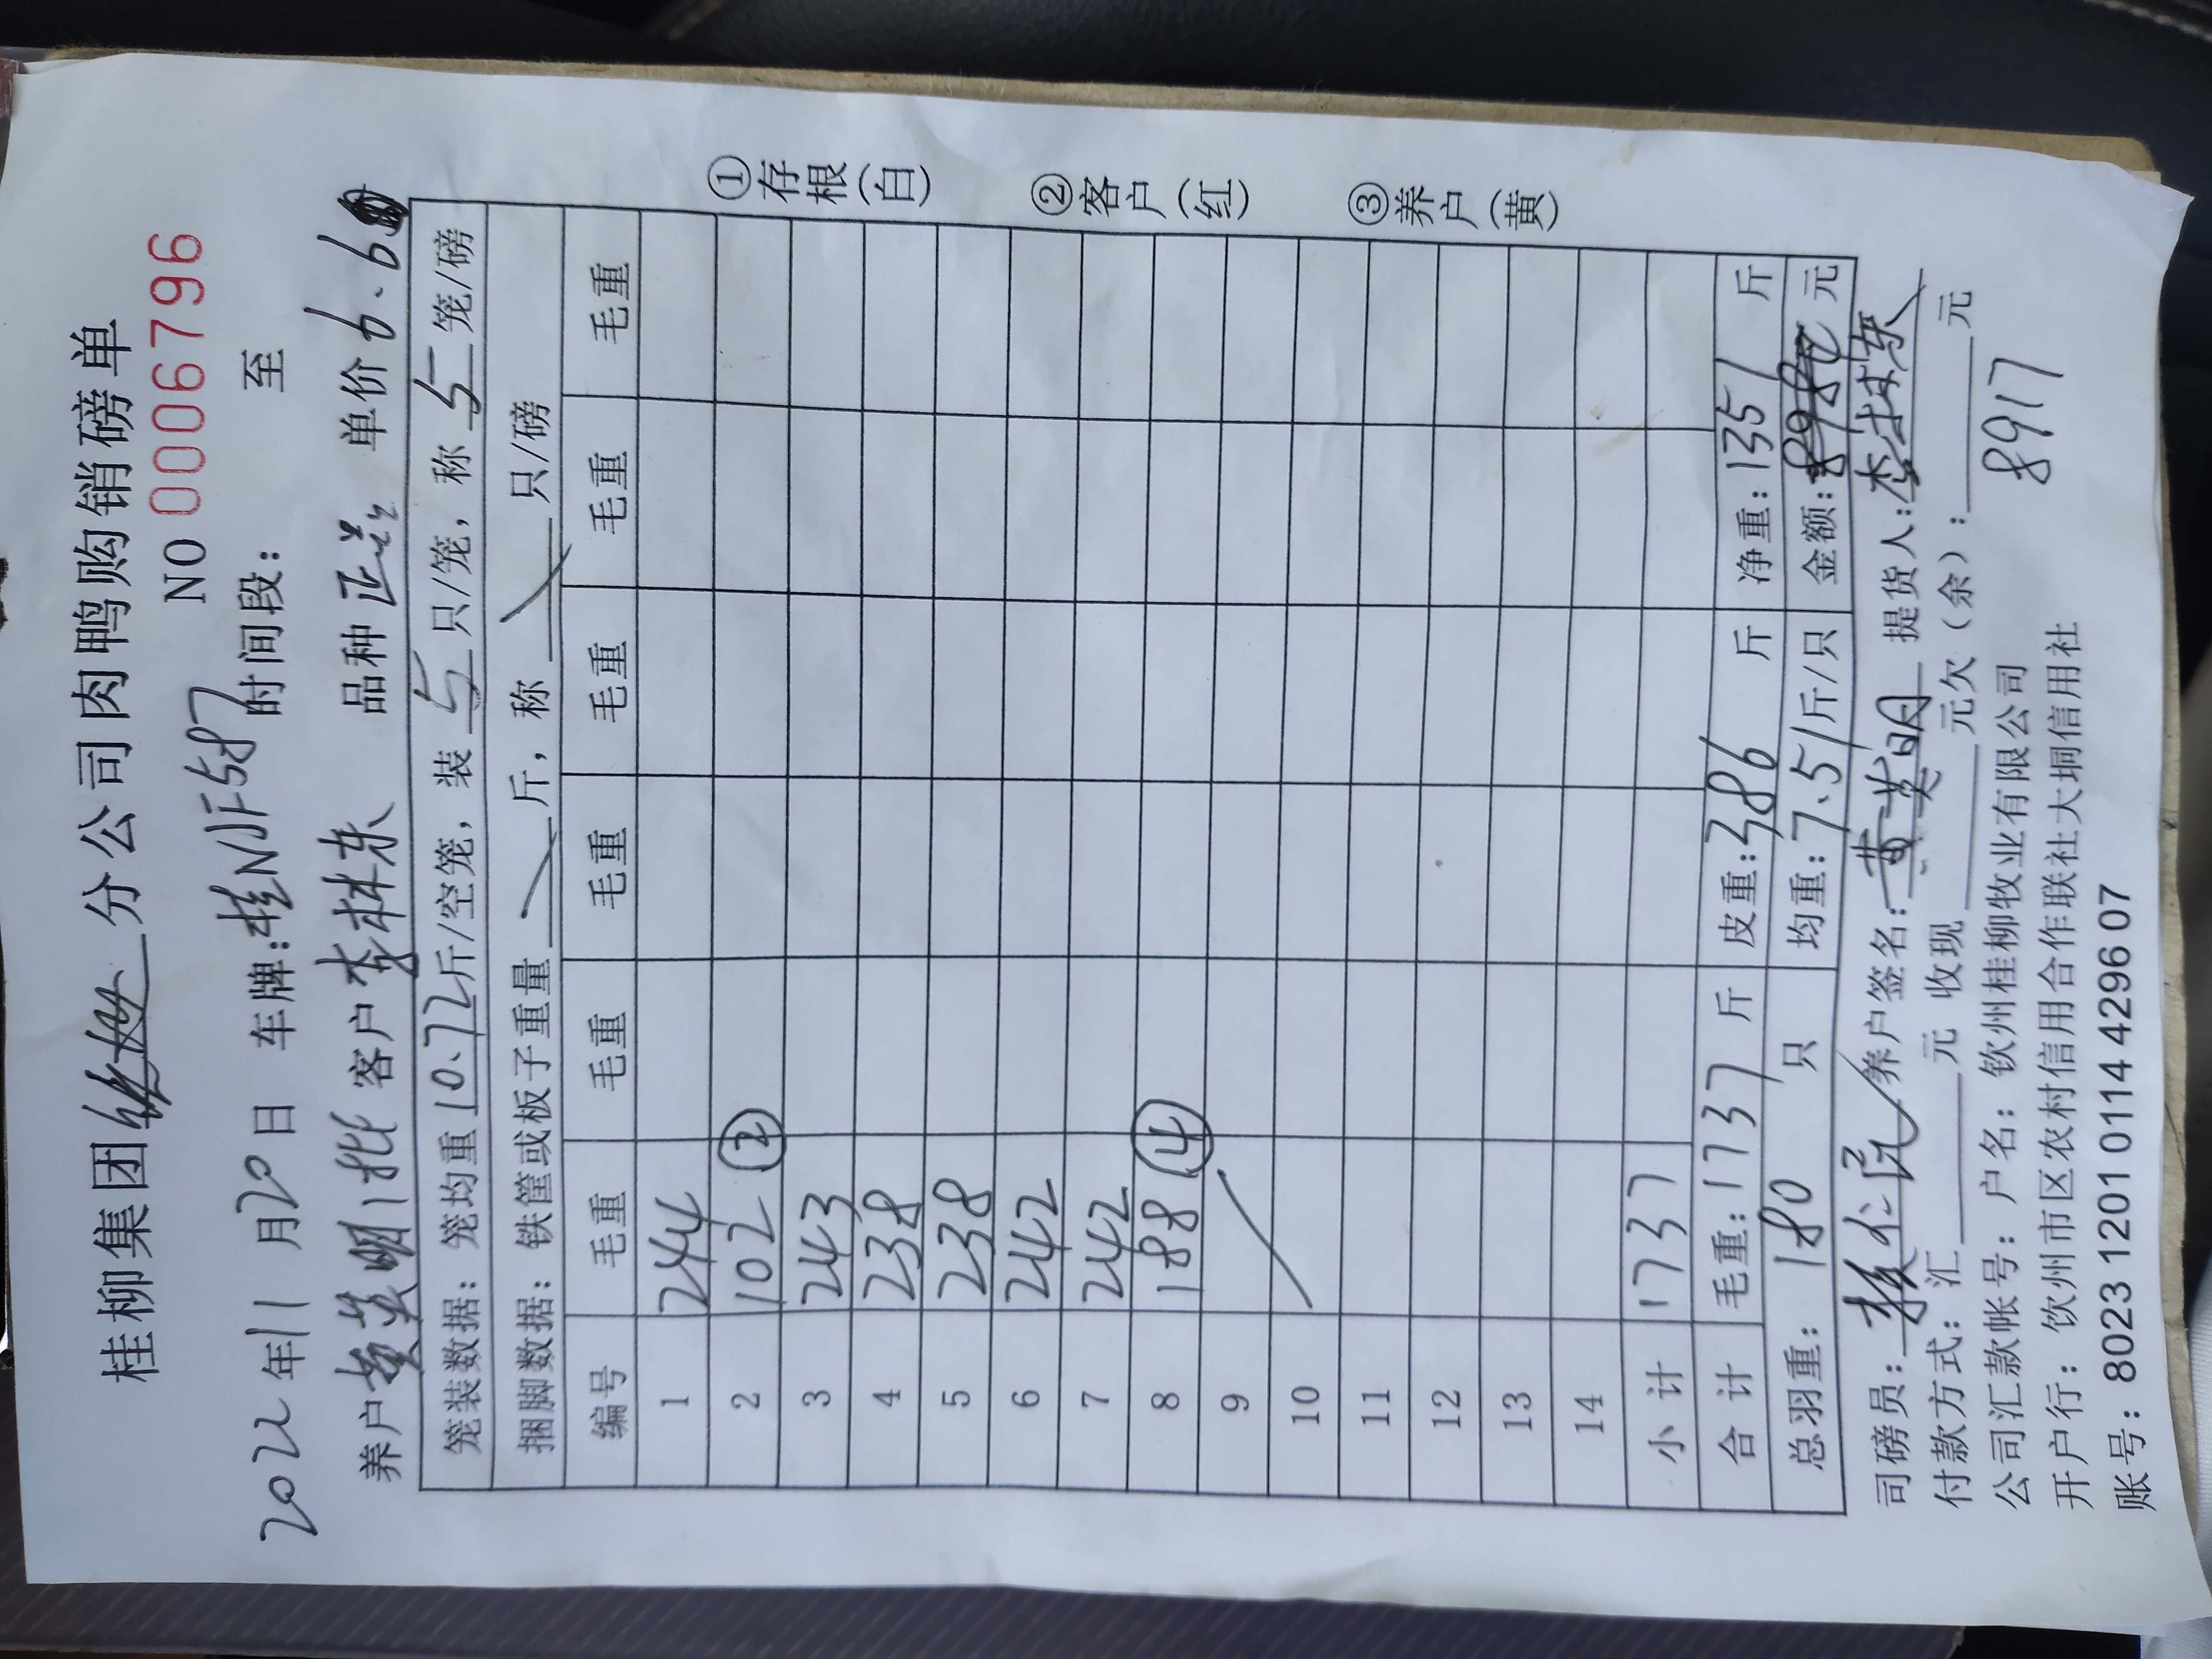 桂柳集团 分公司肉鸭购销磅单
NO 0006796
2022年11月20日 车牌:桂NJF587 时间段: 至
养户黄英明1批 客户李林东 品种 正芒 单价6.6
笼装数据:笼均重10.72斤/空笼,装 5 只/笼,称 5 笼/磅
捆脚数据:铁筐或板子重量 斤,称 只/磅
编号 毛重 毛重 毛重 毛重 毛重 毛重
1 244
2 102 ②
3 243
4 238
5 238
6 242
7 242
8 188 ④
9
10
11
12
13
14
小计 1737
合计 毛重:1737斤 皮重:386斤 净重:1351斤
总羽重:180只 均重:7.51斤/只 金额: 元
①存根(白)
②客户(红)
③养户(黄)
司磅员: 养户签名:黄英明 提货人:李林东
付款方式:汇 元 收现 元欠(余): 元
公司汇款帐号:户名:钦州桂柳牧业有限公司
8917
开户行:钦州市区农村信用合作联社大垌信用社
账号:8023 1201 0114 4296 07